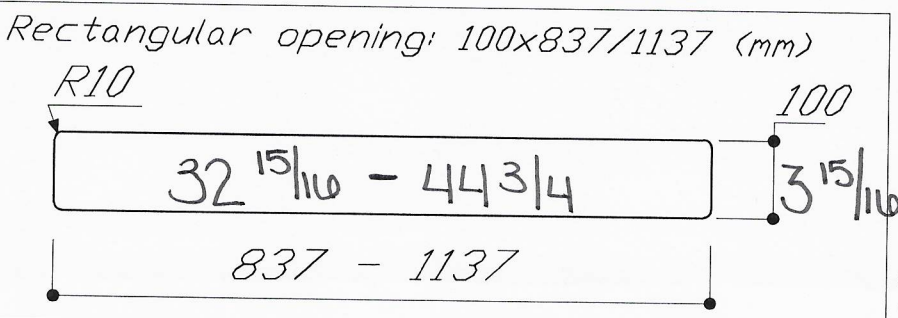 Rectangular opening: 100x837/1137 (mm)
R10
100
32 15/16 - 44 3/4
3 15/16
837 - 1137